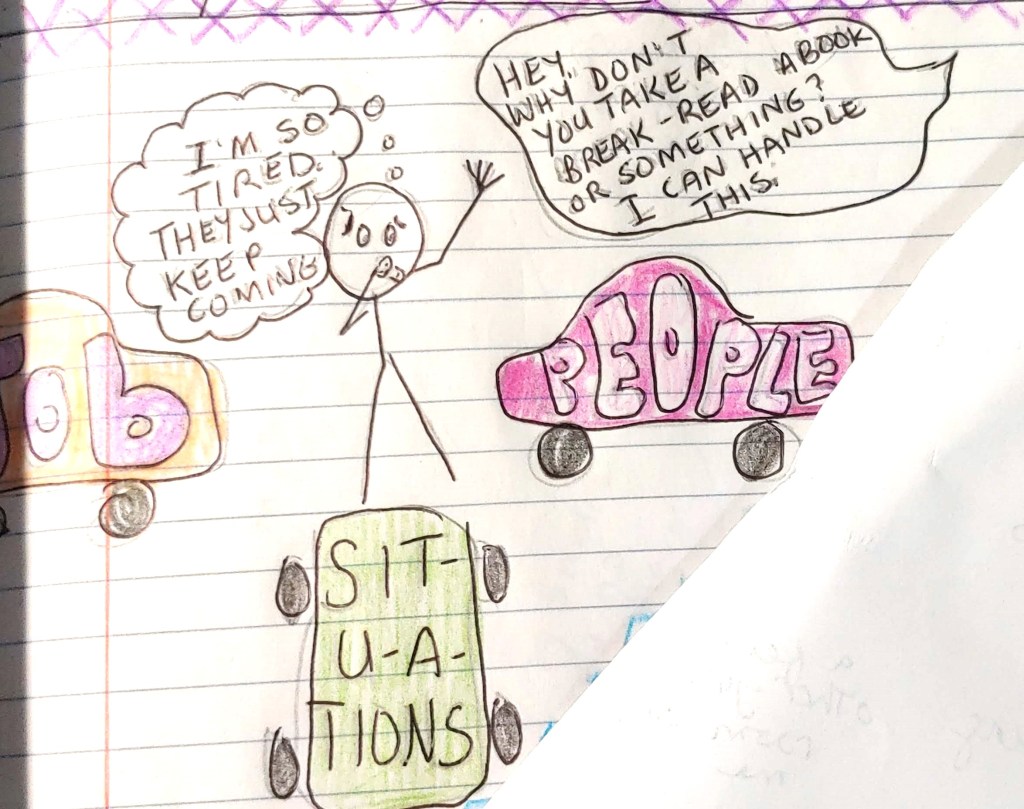 I'M SO
TIRED.
THEY JUST
KEEP
COMING
HEY,
WHY DON'T
YOU TAKE A
BREAK - READ A BOOK
OR SOMETHING?
I CAN HANDLE
THIS.
Job
PEOPLE
SIT-
U-A-
TIONS